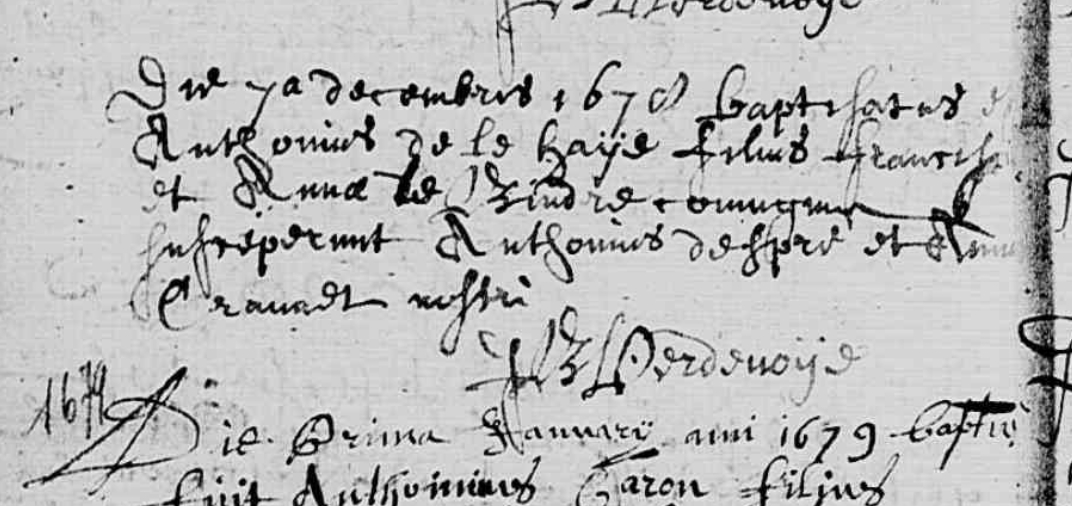 Die 7a decembris 1678 baptisatus e
Anthonius de le haÿe filius francis
et Annæ le Bindre coniugum
susceperunt Anthonius despré et Ann
Cravaet nostri
JB Perdevoÿe
1679
Die Prima Januarÿ anni 1679 baptis
fuit Anthonius Caron filius